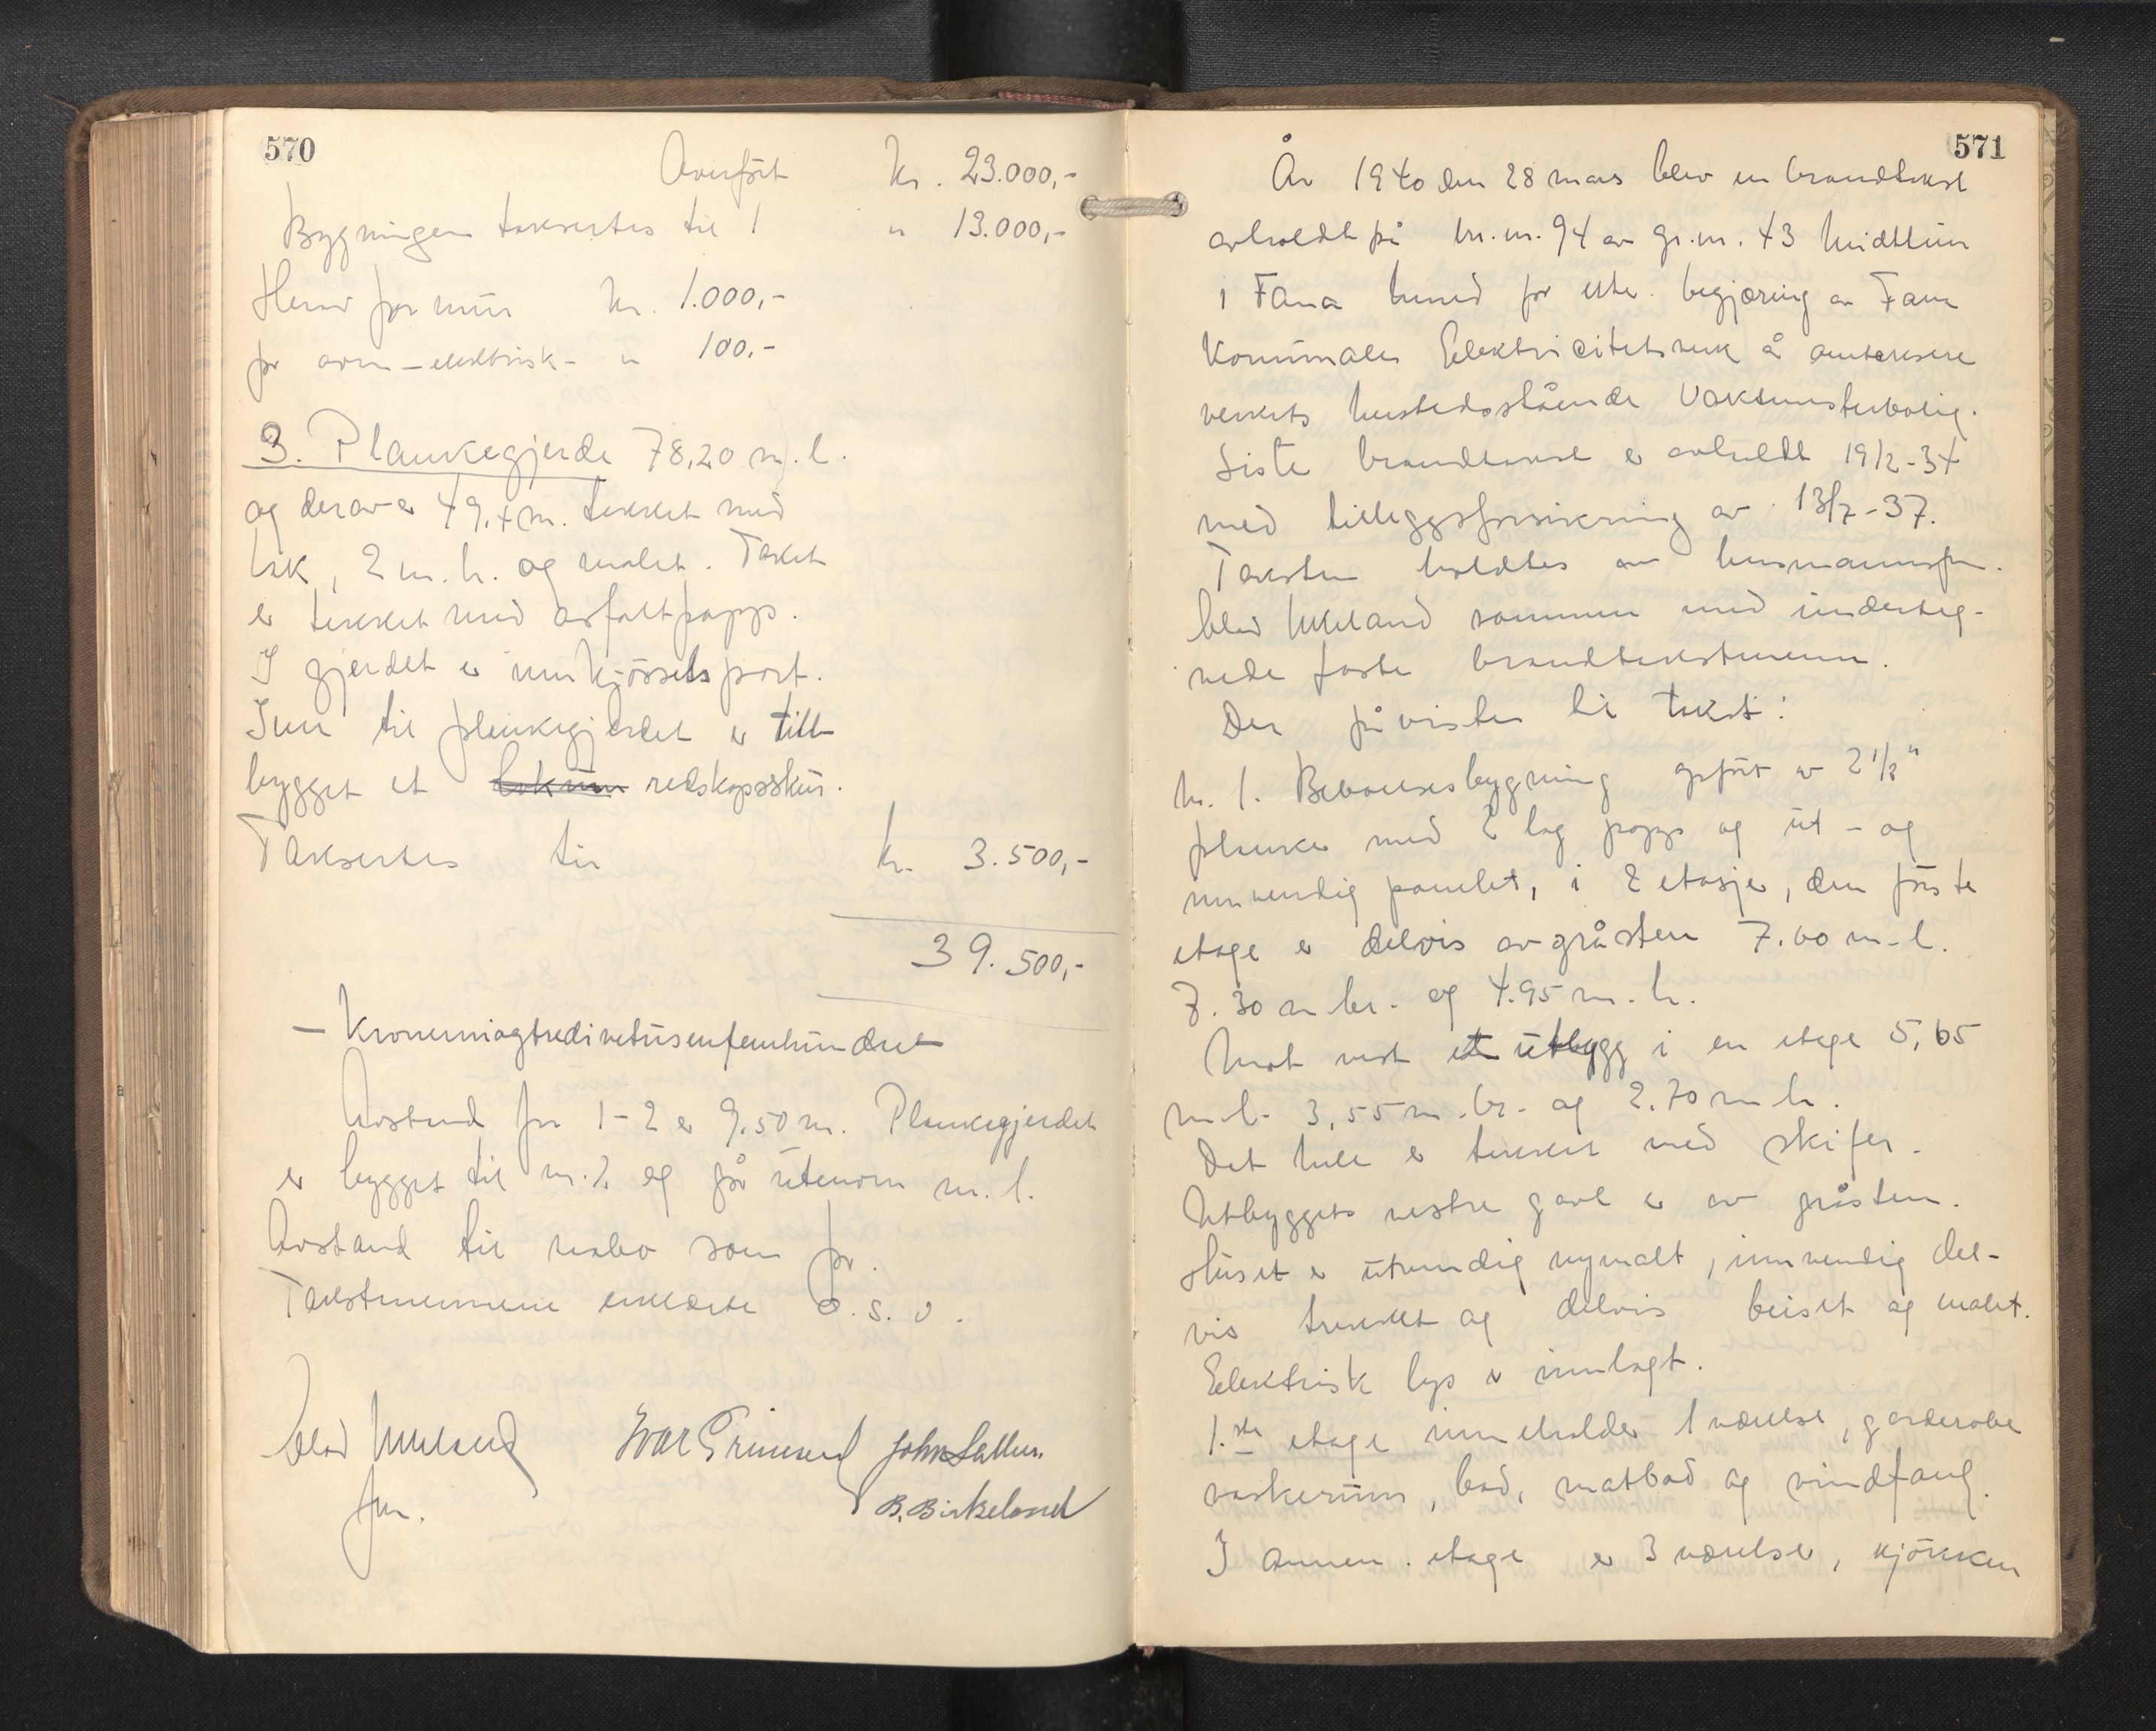 570
Overført kr. 23.000,-
Bygningen takseertes til " 13.000,-
Herav for mur kr. 1.000,-
for ovn - elektrisk - " 100.-
3. Plankegjerde 78,20 m. l.
og derav er 49,4 m. tekket med
tak, 2 m. h. og malet. Taket
er tekket med asfaltpapp.
I gjerdet er innkjørselsport.
Inn til plankegjerdet er till-
bygget et redskapsskur.
Takseertes til kr. 3.500,-
39.500,-
- Kronerniogtredivetusenfemhundre -
Avstand fra 1-2 er 9,50 m. Plankegjerdet
er bygget til nr. 2 og går utenom nr. 1.
Avstand til nabo som før.
Takstmennene erklærte o.s.v.
Ivar Grimseid John Sælen
B. Birkeland
571
År 1940 den 28 mars blev en brandtakst
avholdt på br. nr. 94 av gr. nr. 43 Midttun
i Fana herred for efter begjæring av Fana
Kommunale Elektricitetsverk å omtaksere
verkets herstedsstående Vaktmesterbolig.
Siste brandtakst er avholdt 19/2-34
med tilleggsforsikring av 13/7-37.
Taksten holdtes av lensmannsfm.
sammen med underteg-
nede faste brandtakstmenn.
Der påvistes til takst:
nr. 1. Beboelsesbygning opført av 2 1/2"
planker med 2 lag papp og ut- og
innvendig panelet, i 2 etasjer, den første
etage er delvis av gråsten 7.60 m. l.
7.30 m br. og 4.95 m. h.
Mot vest et utbygg i en etage 5,65
m. l. 3,55 m. br. og 2.70 m h.
Det hele er tekket med skifer.
Utbyggets vestre gavl er av gråsten.
Huset er utvendig nymalt, innvendig del-
vis trukket og delvis beiset og malet.
Elektrisk lys er innlagt.
1.ste etage inneholder 1 værelse, garderobe
vaskerum, bad, matbod og vindfang.
I annen etage er 3 værelser, kjøkken